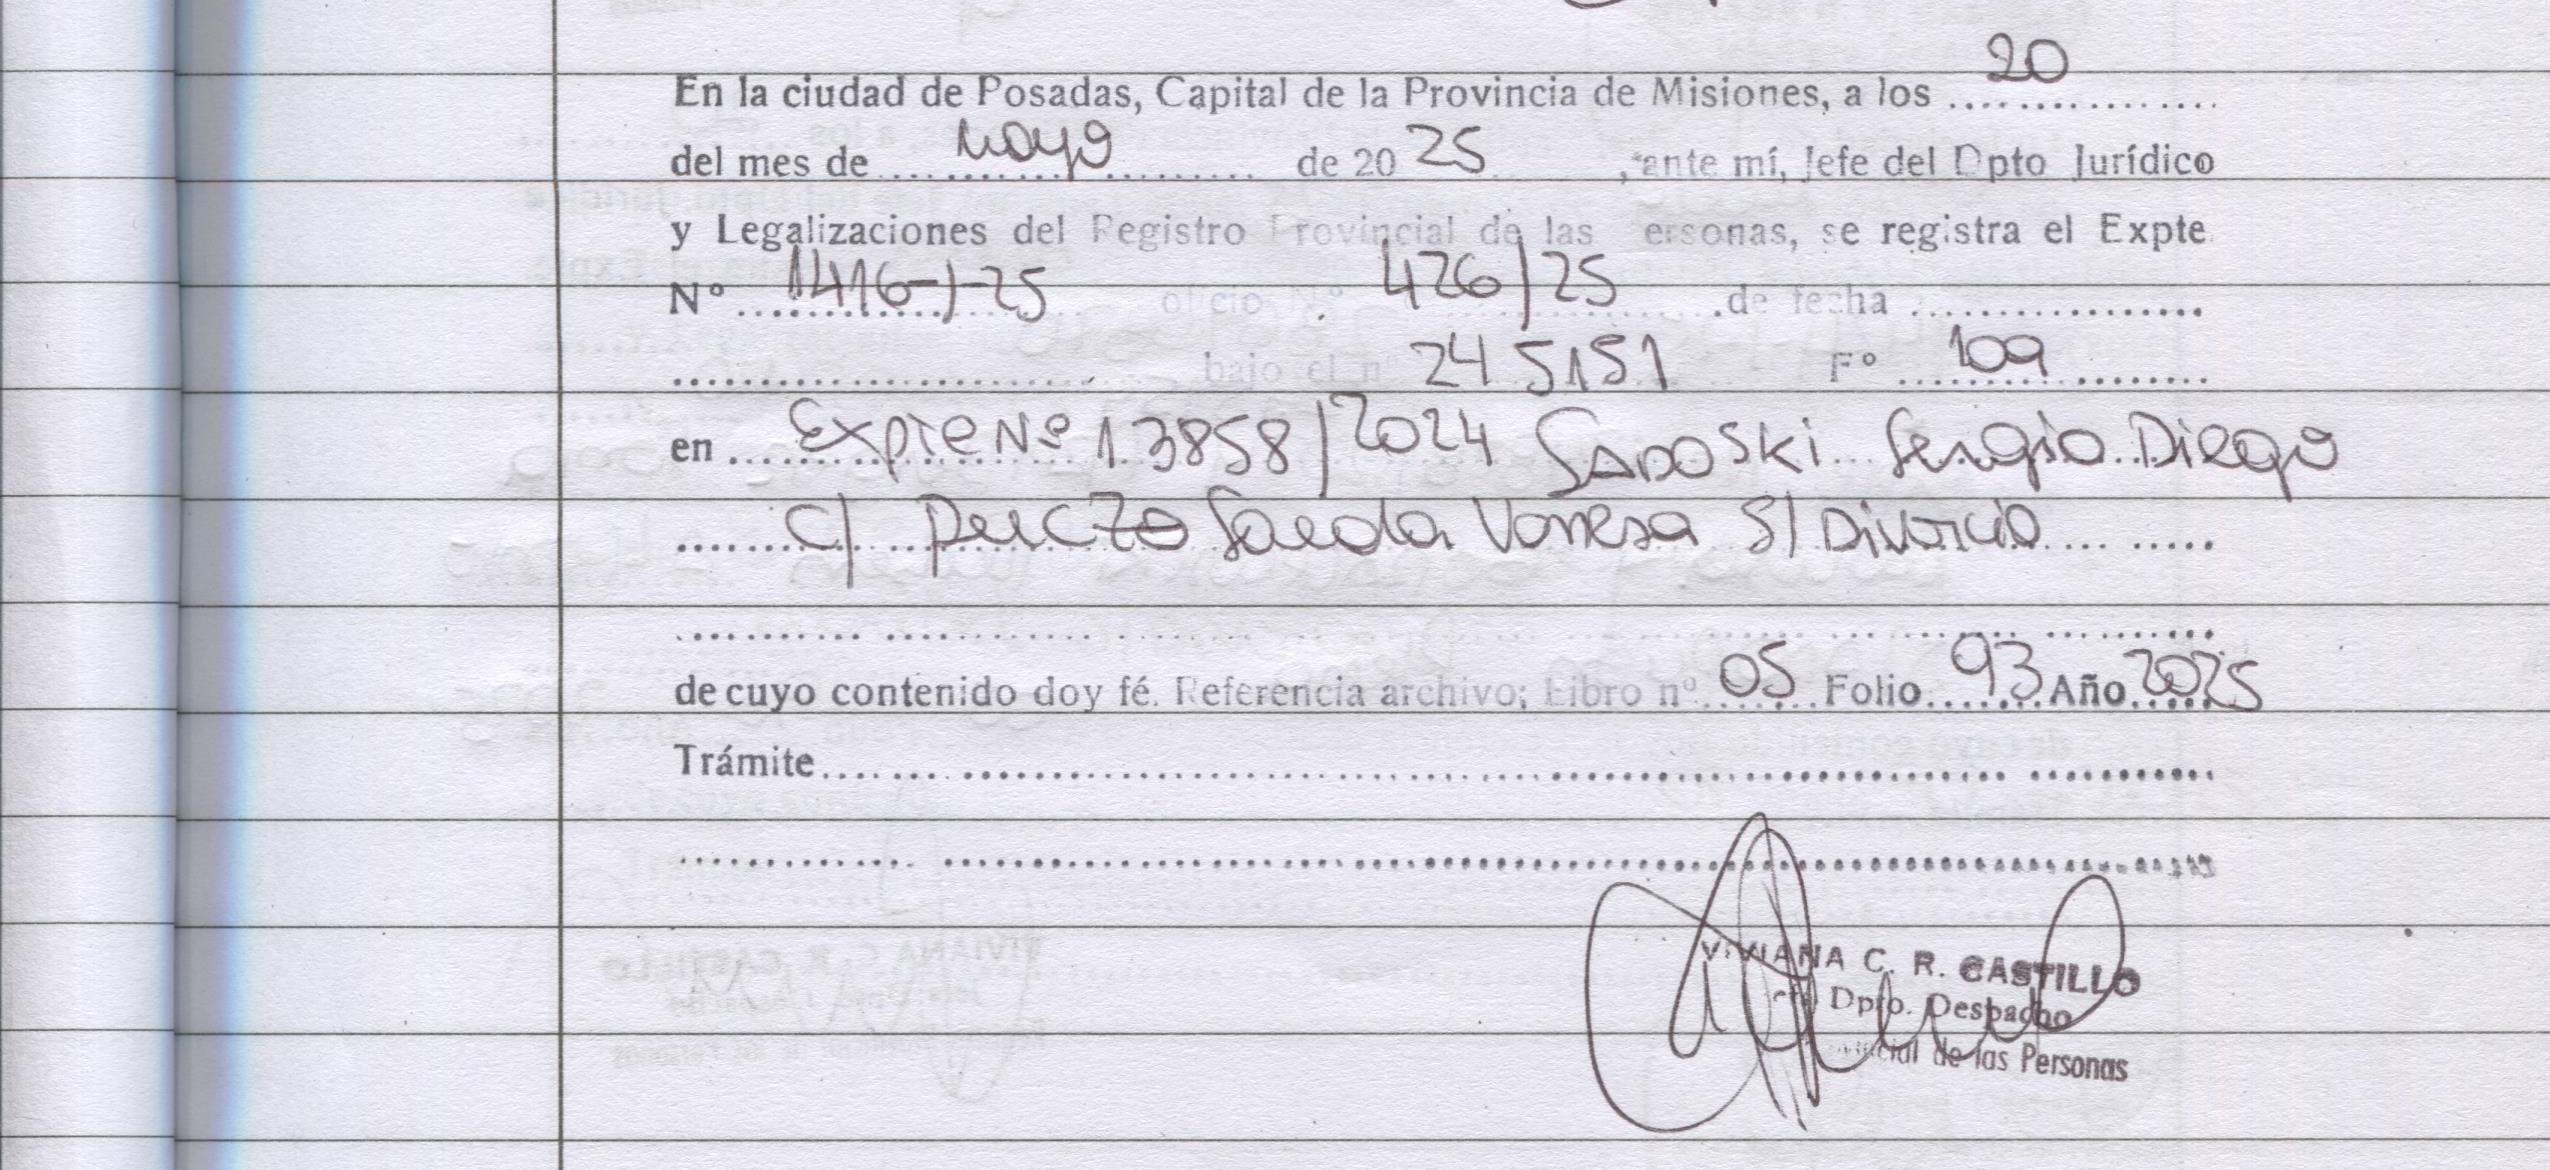 20
En la ciudad de Posadas, Capital de la Provincia de Misiones, a los ................
del mes de ..... mayo ......... de 20 25 , ante mí, Jefe del Dpto Jurídico
y Legalizaciones del Registro Provincial de las ersonas, se registra el Expte
N° 1416-J-25 oficio N° 426/25 de fecha ..................
........................ bajo el n° 245151 F° 109
en Expte Nº 13858/2024 Sadoski Sergio Diego
C/ Vanesa S/ Divorcio
de cuyo contenido doy fé. Referencia archivo; Libro n° 05 Folio 93 Año 2025
Trámite
VIVIANA C. R. CASTILLO
Dpto. Despacho
de las Personas